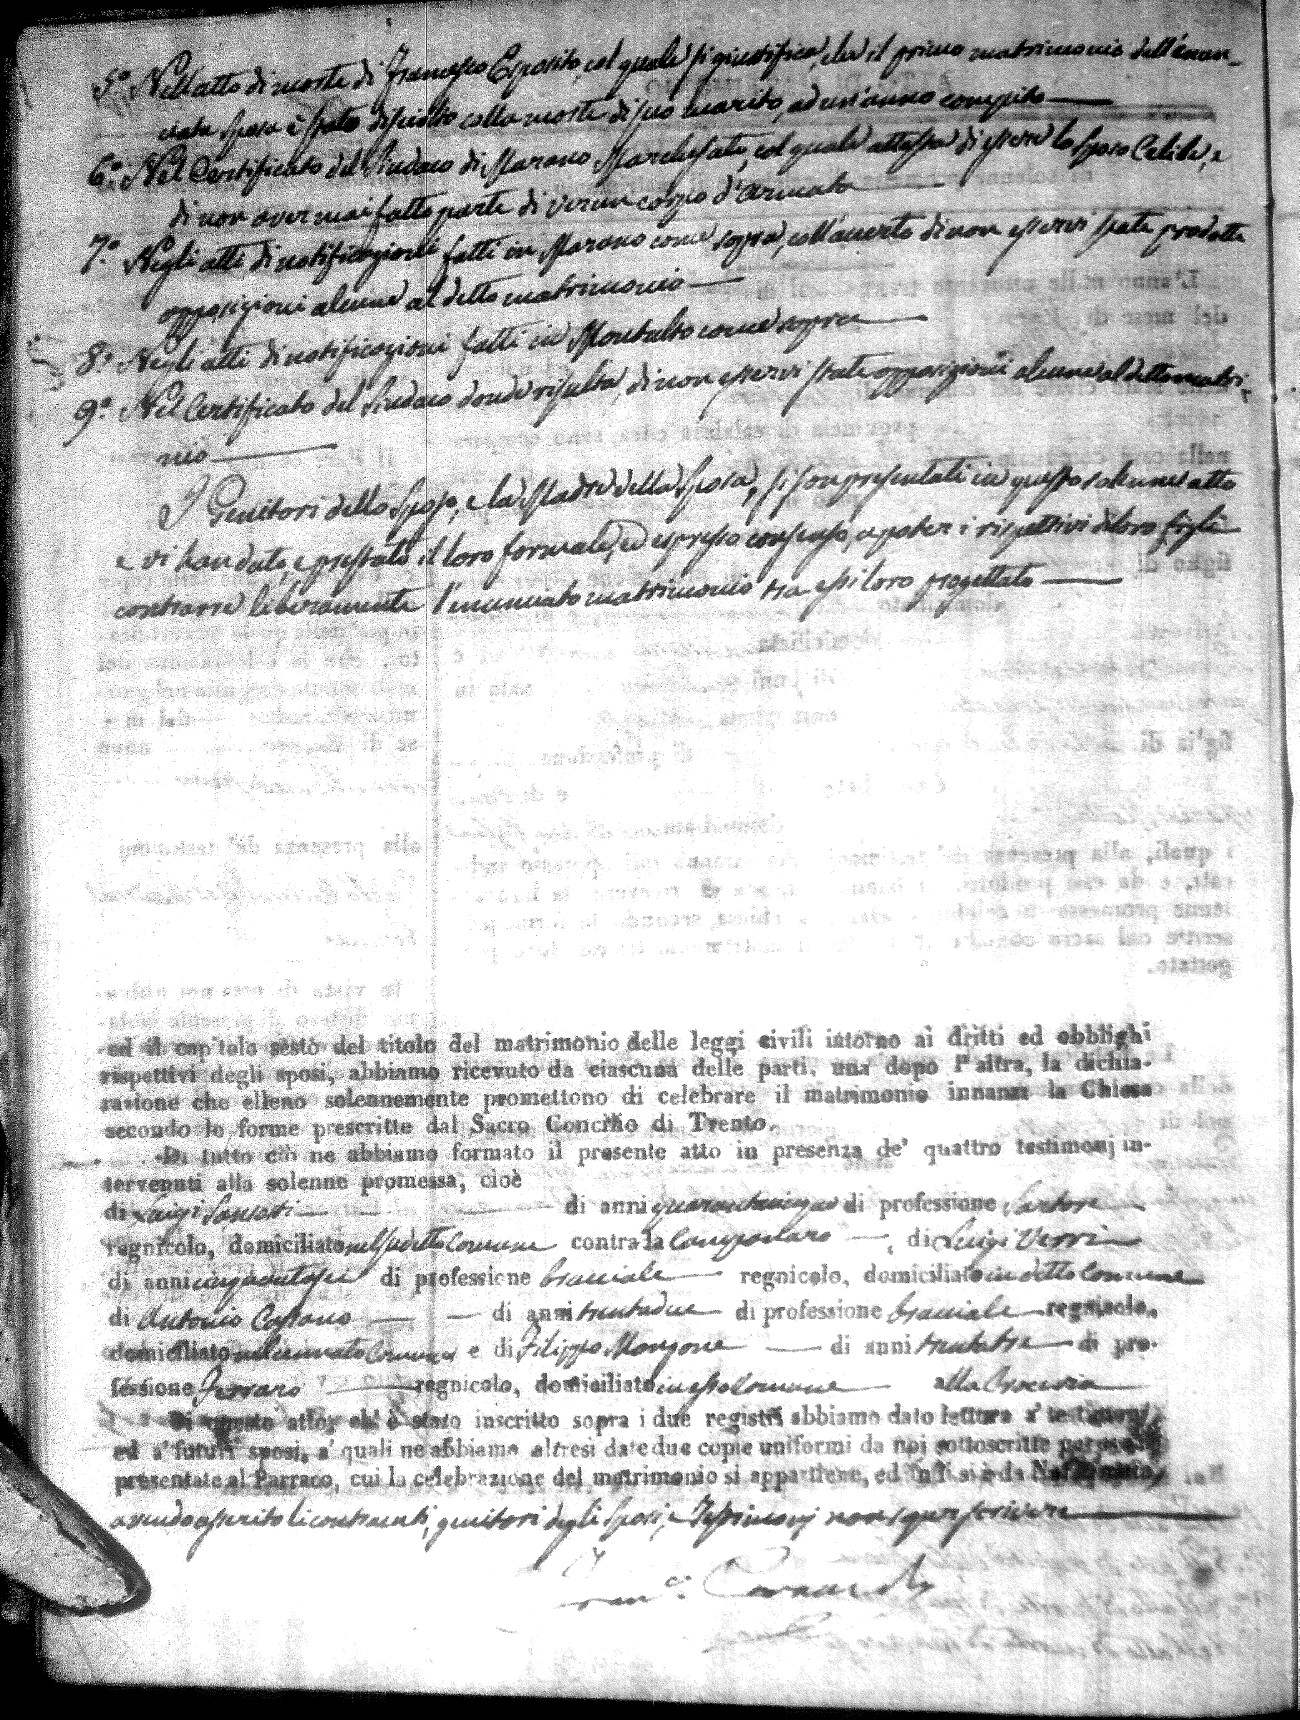 5.º Nell'atto di morte di Francesco Esposito, col quale si giustifica, che il primo matrimonio dell'enun-
ciata sposa è stato disciolto colla morte di suo marito, ad un'anno compito
6.º Nel Certificato del Sindaco di Marano Marchesato, col quale attesta di essere lo sposo Celibe, e
di non aver mai fatto parte di verun corpo d'armata
7.º Negli atti di notificazione fatti in Marano come sopra, coll'accerto di non esservi state prodotte
opposizioni alcune al detto matrimonio
8.º Negli atti di notificazioni fatti in Montalto come sopra
9.º Nel Certificato del Sindaco donde risulta, di non esservi state opposizioni alcune al detto matri,
nio
I Genitori dello Sposo, e la Madre della Sposa, si son presentati in questo solenne atto
e vi han dato, e prestato il loro formale, ed espresso consenso, a poter i rispettivi di loro figli
contrarre liberamente l'enunciato matrimonio tra essi loro progettato
ed il capitolo sesto del titolo del matrimonio delle leggi civili intorno ai dritti ed obblighi
rispettivi degli sposi, abbiamo ricevuto da ciascuna delle parti, una dopo l'altra, la dichia-
razione che elleno solennemente promettono di celebrare il matrimonio innanzi la Chiesa
secondo le forme prescritte dal Sacro Concilio di Trento.
Di tutto ciò ne abbiamo formato il presente atto in presenza de' quattro testimonj in-
tervenuti alla solenne promessa, cioè
di Luigi di anni quarantacinque di professione Sartore
regnicolo, domiciliato nel sudetto Comune contrala , di Luigi Verri
di anni cinquantasei di professione bracciale regnicolo, domiciliato in detto Comune
di Antonio di anni trentadue di professione bracciale regnicolo,
domiciliato nel cennato Comune e di Filippo Mangone di anni trentatre di pro-
fessione Ferraro regnicolo, domiciliato in esso Comune alla
Di questo atto, ch' è stato inscritto sopra i due registri abbiamo dato lettura a' testimonj,
ed a' futuri sposi, a' quali ne abbiamo altresì date due copie uniformi da noi sottoscritte per essere
presentate al Parroco, cui la celebrazione del matrimonio si appartiene, ed indi si è da Noi firmato,
avendo asserito li contraenti, genitori degli Sposi, e Testimonj non saper scrivere